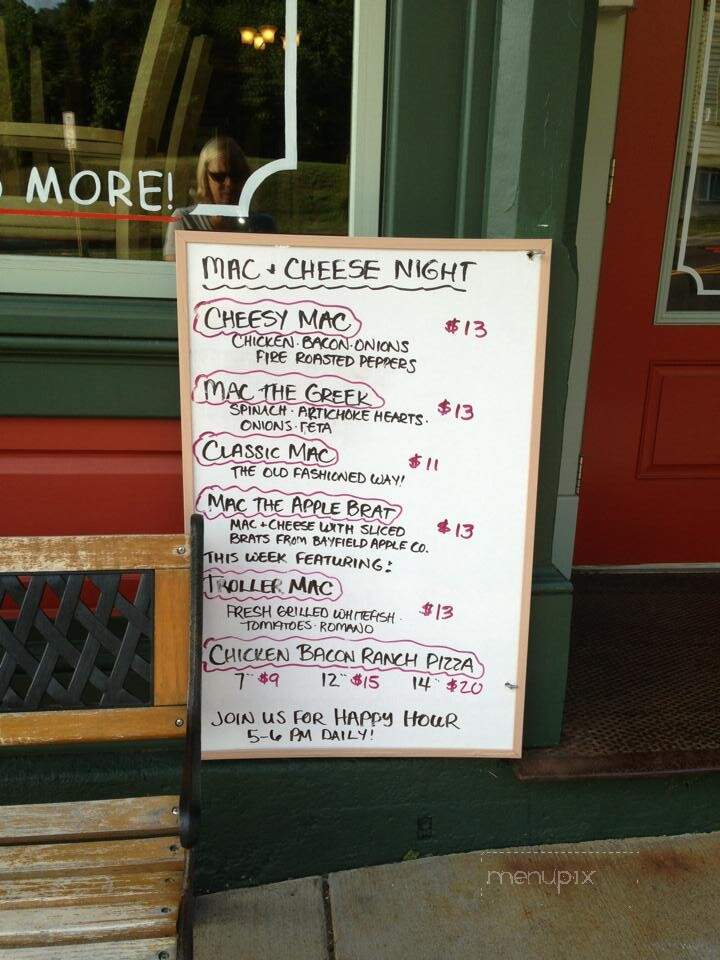 MORE!
MAC & CHEESE NIGHT
CHEESY MAC $13
CHICKEN · BACON · ONIONS
FIRE ROASTED PEPPERS
MAC THE GREEK $13
SPINACH · ARTICHOKE HEARTS ·
ONIONS · FETA
CLASSIC MAC $11
THE OLD FASHIONED WAY!
MAC THE APPLE BRAT $13
MAC + CHEESE WITH SLICED
BRATS FROM BAYFIELD APPLE CO.
THIS WEEK FEATURING:
TROLLER MAC $13
FRESH GRILLED WHITEFISH ·
TOMATOES · ROMANO
CHICKEN BACON RANCH PIZZA
7" $9 12" $15 14" $20
JOIN US FOR HAPPY HOUR
5-6 PM DAILY!
menupix